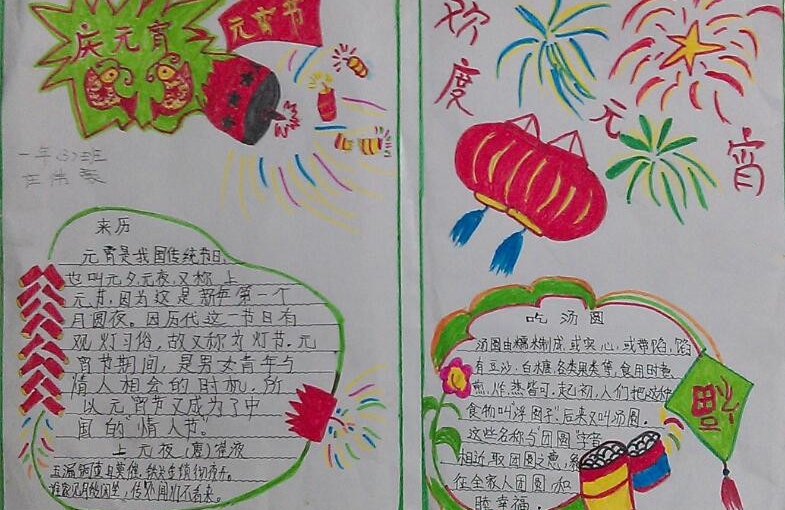 庆元宵
元宵节
一年(3)班
来历
元宵是我国传统节日、
也叫元夕、元夜、又称上
元节、因为这是新年第一个
月圆夜。因历代这一节日有
观灯习俗,故又称为灯节。元
宵节期间,是男女青年与
情人相会的时机,所
以元宵节又成为了中
国的“情人节”
上元夜(唐)崔液
玉漏铜壶且莫催,铁关金锁彻夜开。
谁家见月能闲坐,何处闻灯不看来。
欢度元宵
吃汤圆
汤圆由糯米制成,或实心,或带馅,馅
有豆沙、白糖、各类果类等,食用时煮、
煎、炸、蒸皆可。起初,人们把这种
食物叫“浮圆子”后来又叫汤圆。
这些名称与“团圆”字音
相近取团圆之意,
征全家人团圆,和
睦幸福。
福